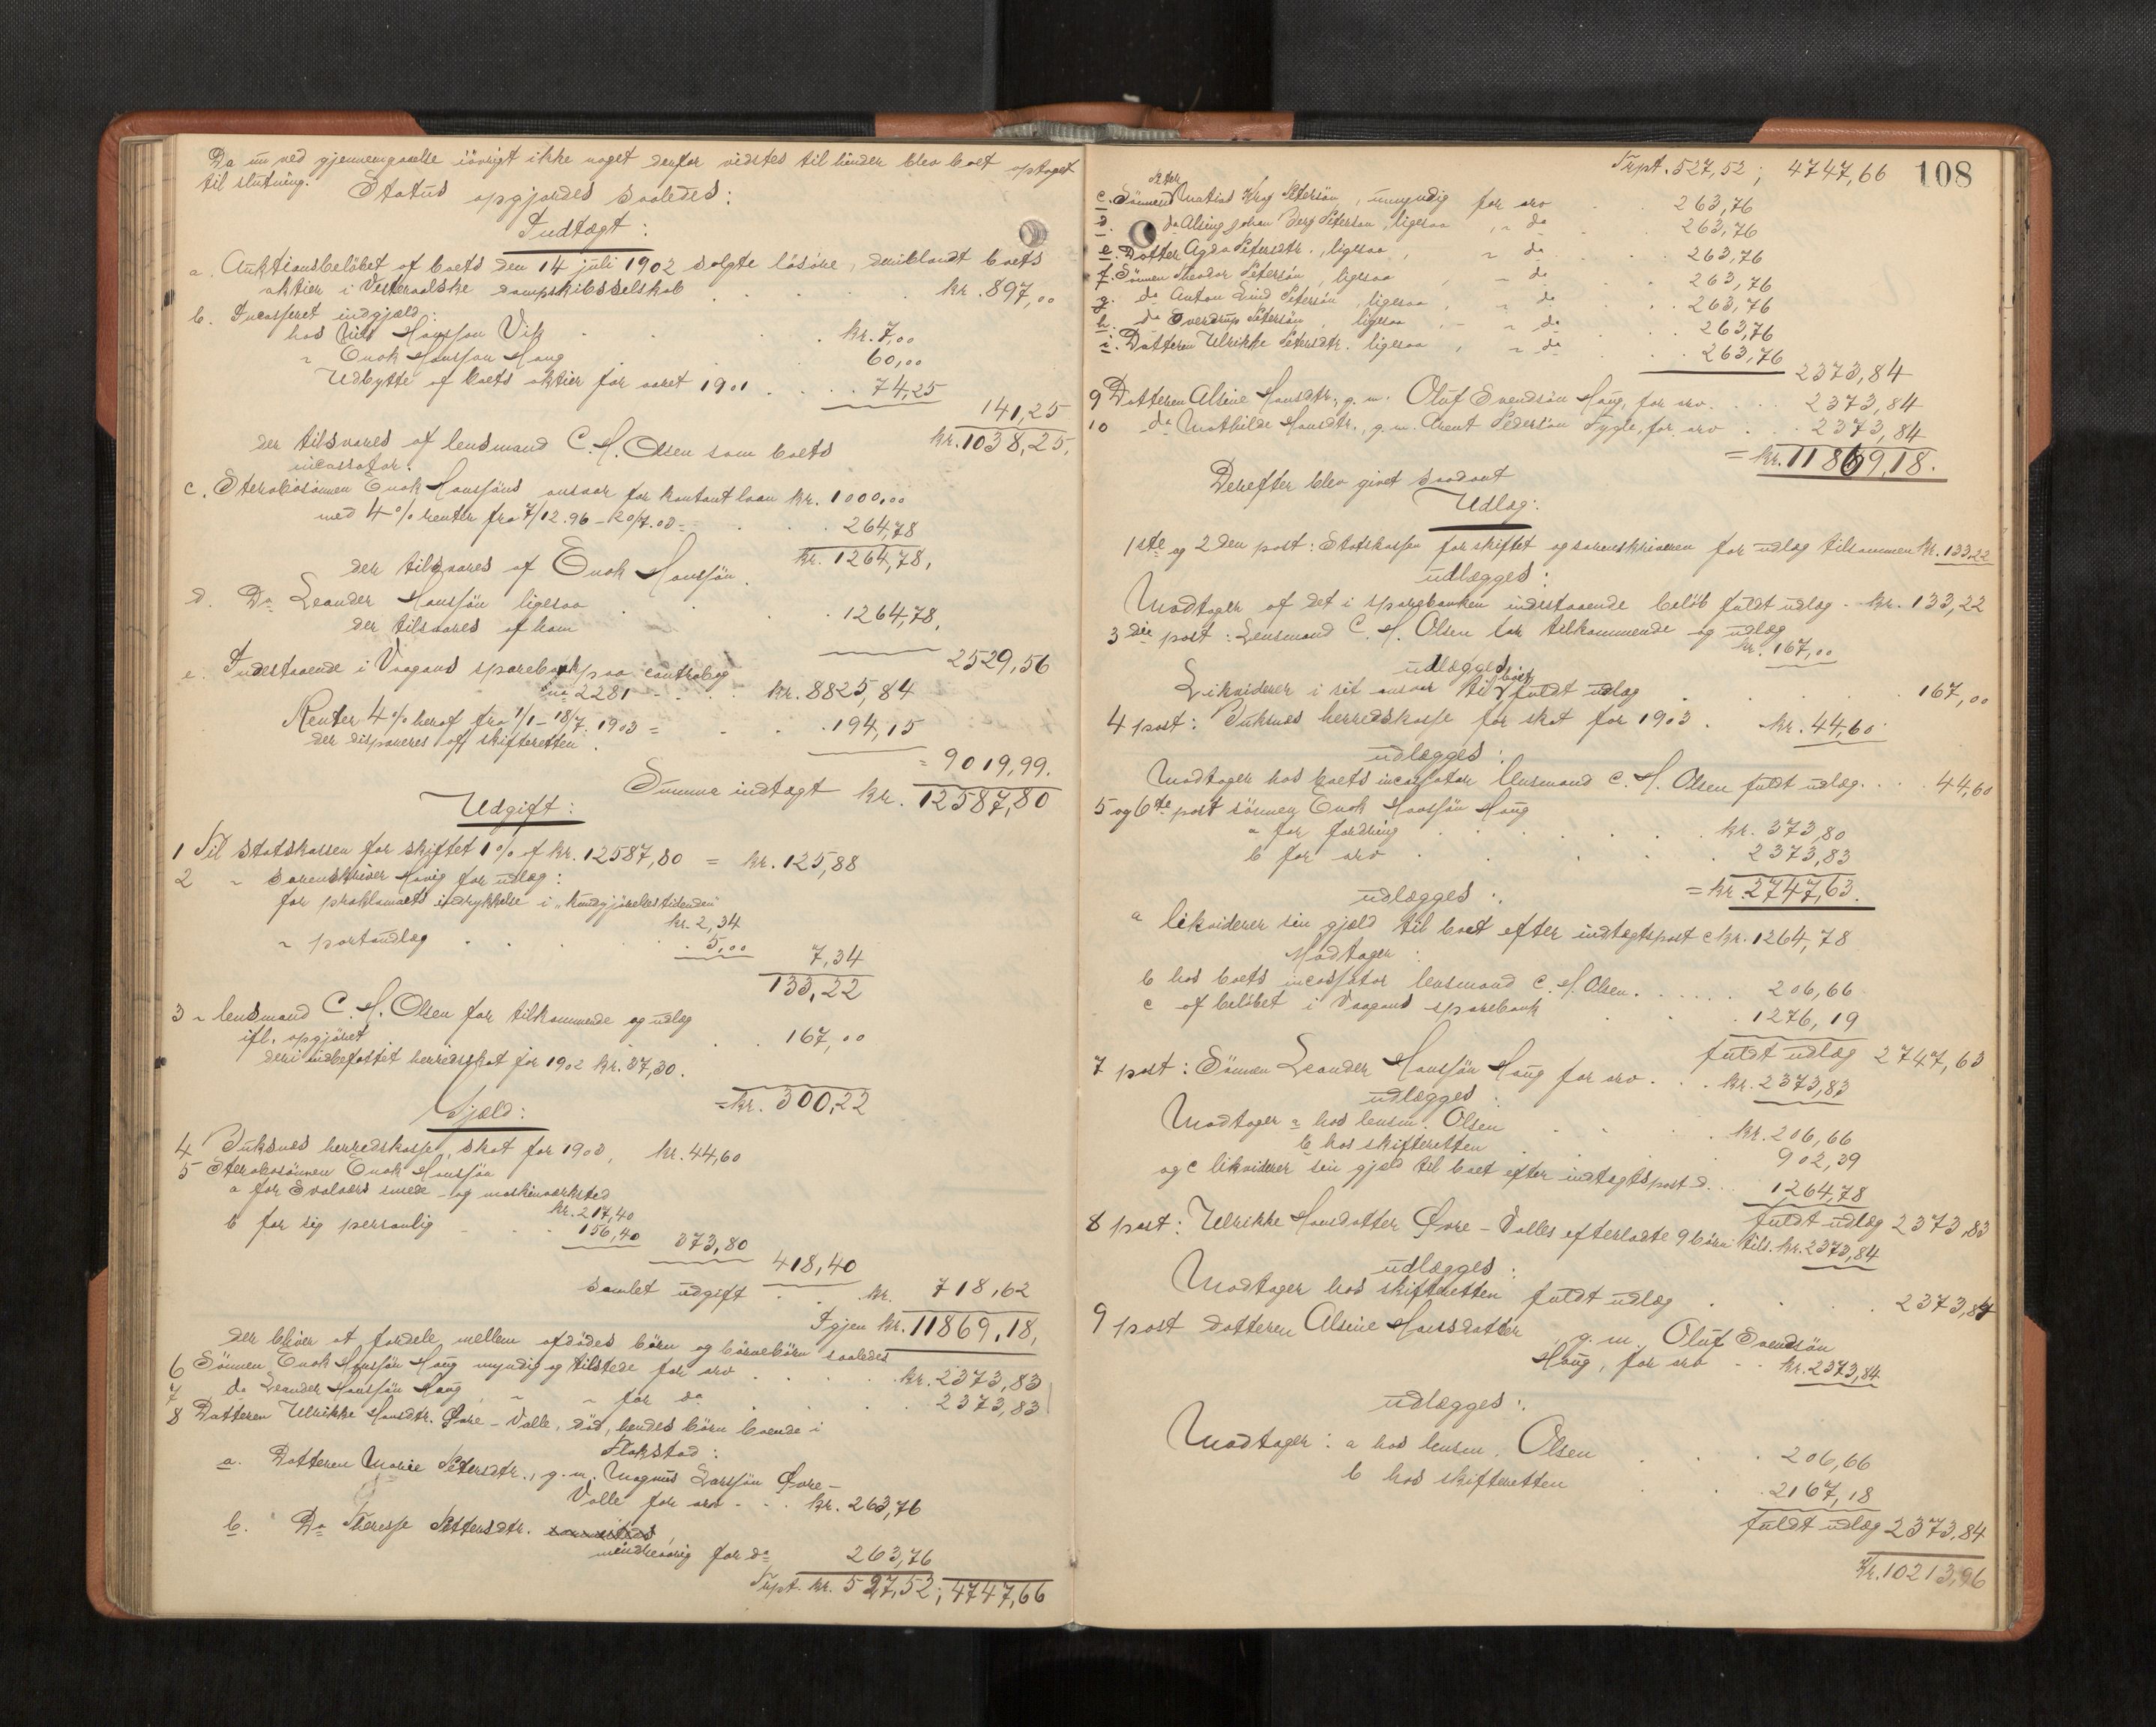 Da nu ved gjennemgaaelse iövrigt ikke noget derfor vidstes til hinder blev boet optaget
til slutning.
Status opgjordes saaledes:
Indtægt:
a. Auktionsbelöbet af boets den 14 juli 1902 solgte lösöre, deriblandt boets
aktier i Vesteraalske dampskibsselskab . . . kr. 897,00
b. Incasseret indgjæld:
hos Nils Hansson Vik . kr. 7,00
" Enok Hansson Haug 60,00
Udbytte af boets aktier for aaret 1901 . . . 74,25
141,25
der tilsvares af lensmand C. H. Olsen som boets kr. 1038,25,
incassator.
c. Sterbosönnen Enok Hanssöns ansvar for kontant laan kr. 1000,00
med 4% renter fra 7/12.96 – 20/7.03 = . . 264,78
der tilsvares af Enok Hanssön. kr. 1264,78,
d. Do Leander Hanssön ligesaa . . . 1264,78,
der tilsvares af ham
2529,56
e. Indestaaende i Vaagans sparebank paa contrabog
no 2281 - . . . kr. 8825,84
Renter 4% heraf fra 1/1 – 18/7. 1903 = . . . 194,15
der disponeres af skifteretten.
= 9019,99.
Summa indtægt kr. 12587,80
Udgift:
1 Til Statskassen for skiftet 1% af kr. 12587,80 = kr. 125,88
2 " Sorenskriver Havig for udlæg:
for proklamaets indrykkelse i "Kundgjörelsestidenden"
kr. 2,34
" portoudlæg . . . . 5,00
7,34
133,22
3 " lensmand C. H. Olsen for tilkommende og udlæg
ifl. opgjöret . . 167,00
deri indbefattet herredsskat for 1902 kr. 37,30.
= kr. 300,22
Gjæld:
4 Buksnes herredskasse, skat for 1903, kr. 44,60
5 Sterbosönnen Enok Hanssön
a for Svolværs smede- og maskinværksted
kr. 217,40
b for sig personlig . . 156,40
373,80
418,40
Samlet udgift . . kr. 718,62
Igjen kr. 11869,18,
der bliver at fordele mellem afdödes börn og börnebörn saaledes
6 Sönnen Enok Hanssön Haug myndig og tilstede for arv . . . kr. 2373,83
7 do Leander Hanssön Haug, " " for do . . . 2373,83
8 Datteren Ulrikke Hansdtr. Övre-Valle, död, hendes börn boende i
Flakstad:
a. Datteren Marie Petersdtr., g. m. Magnus Larssön Övre-
Valle for arv . . . kr. 263,76
b. Do Theresse Pettersdtr.
mindreaarig for do 263,76
Trpt. kr. 527,52; 4747,66
Trpt. 527,52; 4747,66 108
Peter
c. Sönnen Matias Krog Petersön, umyndig for arv . . 263,76
d. do Alsing Johan Berg Petersön, ligesaa, " do . 263,76
e. Datter Agda Petersdtr., ligesaa, " do . . 263,76
f. Sönnen Theodor Petersön, ligesaa, " do . . 263,76
g. do Anton Lind Petersön, ligesaa, " do . . 263,76
h. do Sverdrup Petersön, ligesaa, " do . . 263,76
i. Datteren Ulrikke Petersdtr. ligesaa, " do . . 263,76
2373,84
9 Datteren Alsine Hansdtr., g. m. Oluf Svendsön Haug, for arv. . . 2373,84
10 do Mathilde Hansdtr., g. m. Arent Pedersön Tygle, for arv . . . 2373,84
= kr. 11869,18.
Derefter blev givet saadant
Udlæg:
1ste og 2den post: Statskassen for skiftet og sorenskriveren for udlæg tilsammen kr. 133,22
udlægges:
Modtager af det i sparebanken indestaaende belöb fuldt udlæg . kr. 133,22
3die post: Lensmand C. H. Olsen for tilkommende og udlæg
kr. 167,00
udlægges
Likviderer i sit ansvar til boet fuldt udlæg . . . . 167,00
4 post: Buksnes herredskasse for skat for 1903 . kr. 44,60
udlægges:
Modtager hos boets incassator lensmand C. H. Olsen fuldt udlæg. . . 44,60
5 og 6te post sönnen Enok Hanssön Haug
a for fordring . . . . kr. 373,80
b for arv . . . . 2373,83
= kr. 2747,63.
udlægges:
a likviderer sin gjæld til boet efter indtægtspost c kr. 1264,78
Modtager:
b hos boets incassator lensmand C. H. Olsen. . . . . 206,66
c af belöbet i Vaagans sparebank . . . 1276,19
fuldt udlæg 2747,63
7 post: Sönnen Leander Hanssön Haug for arv . . . kr. 2373,83
udlægges:
Modtager a hos lensm. Olsen . . . kr. 206,66
b hos skifteretten . . . 902,39
og c likviderer sin gjæld til boet efter indtægtspost d. . 1264,78
fuldt udlæg 2373,83
8 post: Ulrikke Hansdatter Övre-Valles efterladte 9 börn tils. kr. 2373,84
udlægges:
Modtager hos skifteretten fuldt udlæg . . . . 2373,84
9 post datteren Alsine Hansdatter, g. m. Oluf Svendsön
Haug, for arv . . kr. 2373,84
udlægges:
Modtager: a hos lensm. Olsen . . . 206,66
b hos skifteretten . . . 2167,18
fuldt udlæg 2373,84
Kr. 10213,96